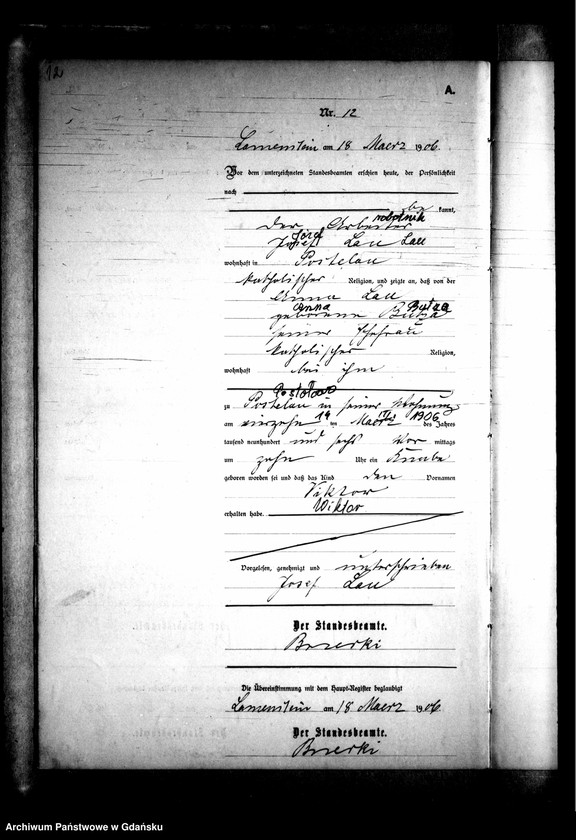 12
A.
Nr. 12
Lamenstein am 18 Maerz 1906.
Vor dem unterzeichneten Standesbeamten erschien heute, der Persönlichkeit
nach
be kannt,
robotnik
der Arbeiter
Józef
Josef Lau Lau
wohnhaft in Postelau
katholischer Religion, und zeigte an, daß von der
Anna Lau
Anna
geborene Butza
seiner Ehefrau
katholischer Religion,
wohnhaft bei ihm
zu Postelau in seiner Wohnung
14 III 1906
am vierzehn ten Maerz des Jahres
tausend neunhundert und sechs Vor mittags
um zehn Uhr ein Knabe
geboren worden sei und daß das Kind den Vornamen
Viktor
Wiktor
erhalten habe.
Vorgelesen, genehmigt und unterschrieben
Josef Lau
Der Standesbeamte.
Die Übereinstimmung mit dem Haupt-Register beglaubigt
Lamenstein am 18 Maerz 1906.
Der Standesbeamte.
Archiwum Państwowe w Gdańsku